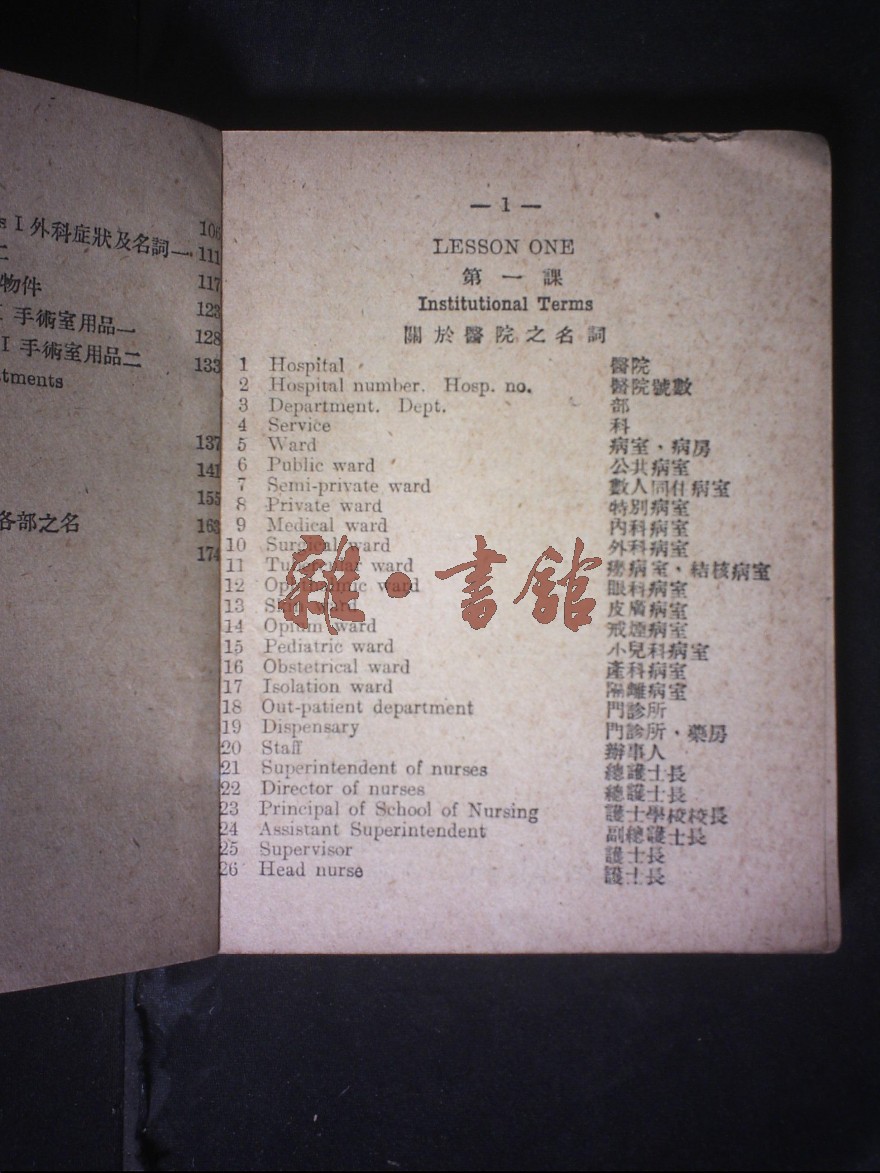 s I 外科症狀及名詞一 106
二 111
物件 117
I 手術室用品一 123
I 手術室用品二 128
133
tments
137
141
155
各部之名 163
174
— 1 —
LESSON ONE
第一課
Institutional Terms
關於醫院之名詞
1 Hospital 醫院
2 Hospital number. Hosp. no. 醫院號數
3 Department. Dept. 部
4 Service 科
5 Ward 病室、病房
6 Public ward 公共病室
7 Semi-private ward 數人同住病室
8 Private ward 特別病室
9 Medical ward 內科病室
10 Surgical ward 外科病室
11 Tubercular ward 癆病室、結核病室
12 ward 眼科病室
13 Skin ward 皮膚病室
14 Opium ward 戒煙病室
15 Pediatric ward 小兒科病室
16 Obstetrical ward 產科病室
17 Isolation ward 隔離病室
18 Out-patient department 門診所
19 Dispensary 門診所、藥房
20 Staff 辦事人
21 Superintendent of nurses 總護士長
22 Director of nurses 總護士長
23 Principal of School of Nursing 護士學校校長
24 Assistant Superintendent 副總護士長
25 Supervisor 護士長
26 Head nurse 護士長
雜·書館